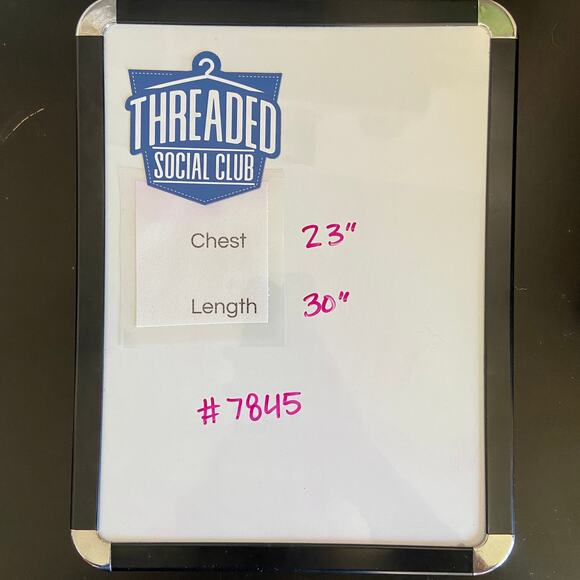 THREADED
SOCIAL CLUB
Chest 23"
Length 30"
#7845